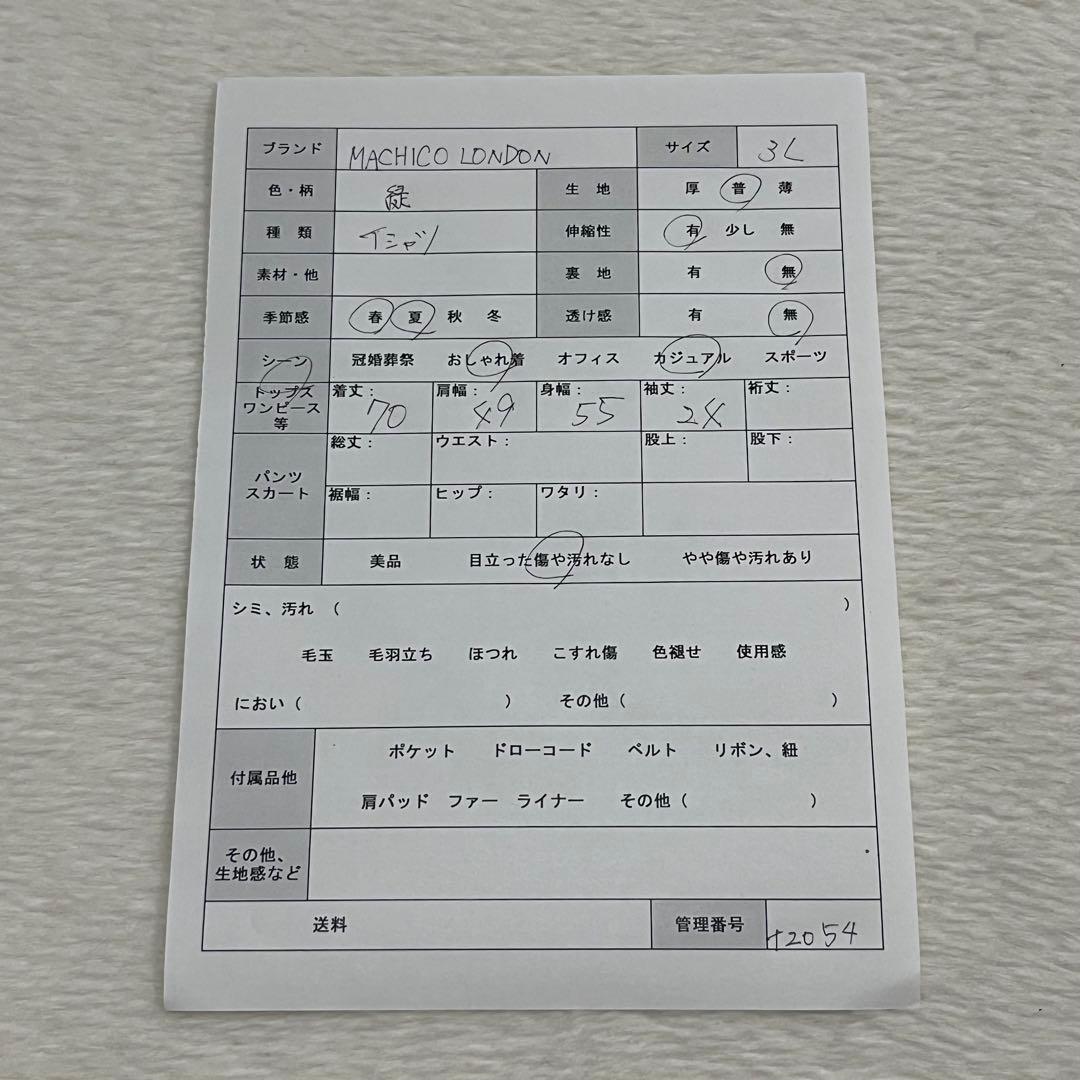 ブランド MACHICO LONDON サイズ 3L
色・柄 緑 生 地 厚 普 薄
種 類 Tシャツ 伸縮性 有 少し 無
素材・他 裏 地 有 無
季節感 春 夏 秋 冬 透け感 有 無
シーン 冠婚葬祭 おしゃれ着 オフィス カジュアル スポーツ
トップス
ワンピース
等
着丈: 70 肩幅: 49 身幅: 55 袖丈: 24 裄丈:
パンツ
スカート
総丈: ウエスト: 股上: 股下:
裾幅: ヒップ: ワタリ:
状 態 美品 目立った傷や汚れなし やや傷や汚れあり
シミ、汚れ ( )
毛玉 毛羽立ち ほつれ こすれ傷 色褪せ 使用感
におい ( ) その他 ( )
付属品他 ポケット ドローコード ベルト リボン、紐
肩パッド ファー ライナー その他 ( )
その他、
生地感など
送料 管理番号 t2054